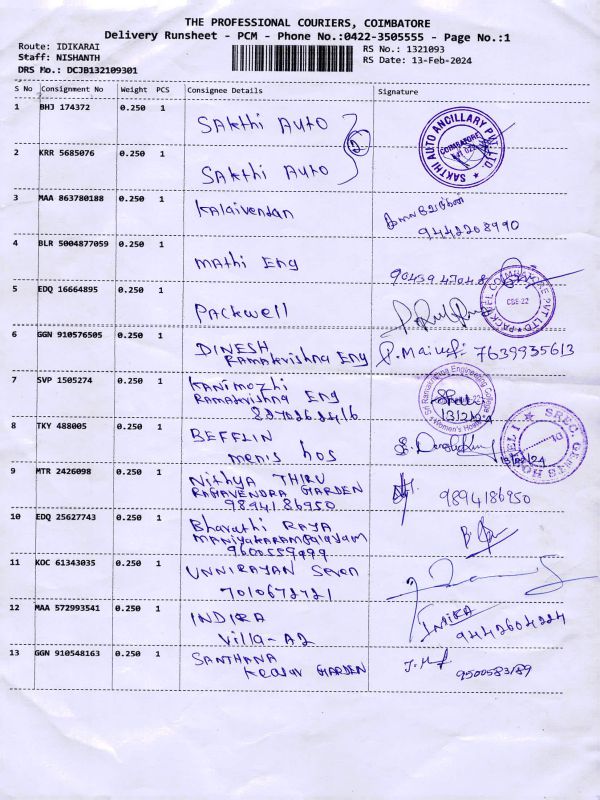 THE PROFESSIONAL COURIERS, COIMBATORE
Delivery Runsheet - PCM - Phone No.:0422-3505555 - Page No.:1
Route: IDIKARAI
RS No.: 1321093
Staff: NISHANTH
RS Date: 13-Feb-2024
DRS No.: DCJB132109301
S No Consignment No Weight PCS Consignee Details Signature
1 BHJ 174372 0.250 1 SAkthi AUTO
2
SAKTHI AUTO ANCILLARY PVT. LTD
COIMBATORE
2 KRR 5685076 0.250 1 SAkthi AUTO
3 MAA 863780188 0.250 1 Kalaivendan
9442208990
4 BLR 5004877059 0.250 1 MAthi Eng
5 EDQ 16664895 0.250 1 PACKWell
PACKWELL COIMBATORE PVT LTD
CBE-22
6 GGN 910576505 0.250 1 DINESH
RAMAkrishna Eng
7639935613
7 SVP 1505274 0.250 1 KANIMOZhi
RAMAkrishna Eng
Sri Ramakrishna Engineering College
Women's Hostel
13/2/24
8 TKY 488005 0.250 1 BEFFLIN
men's hos
SREC GENTS HOSTEL I
10
9 MTR 2426098 0.250 1 Nithya THIRU
RAGAVENDRA GARDEN
9894186950
9894186950
10 EDQ 25627743 0.250 1 Bharathi RAJA
MANIYAKARAMPALAYAM
9600559999
11 KOC 61343035 0.250 1 UNNIRAJAN Seven
7010672721
12 MAA 572993541 0.250 1 INDIRA
Villa-A2
INDIRA
9442604224
13 GGN 910548163 0.250 1 SANTHANA
Kesav GARDEN
9500583189